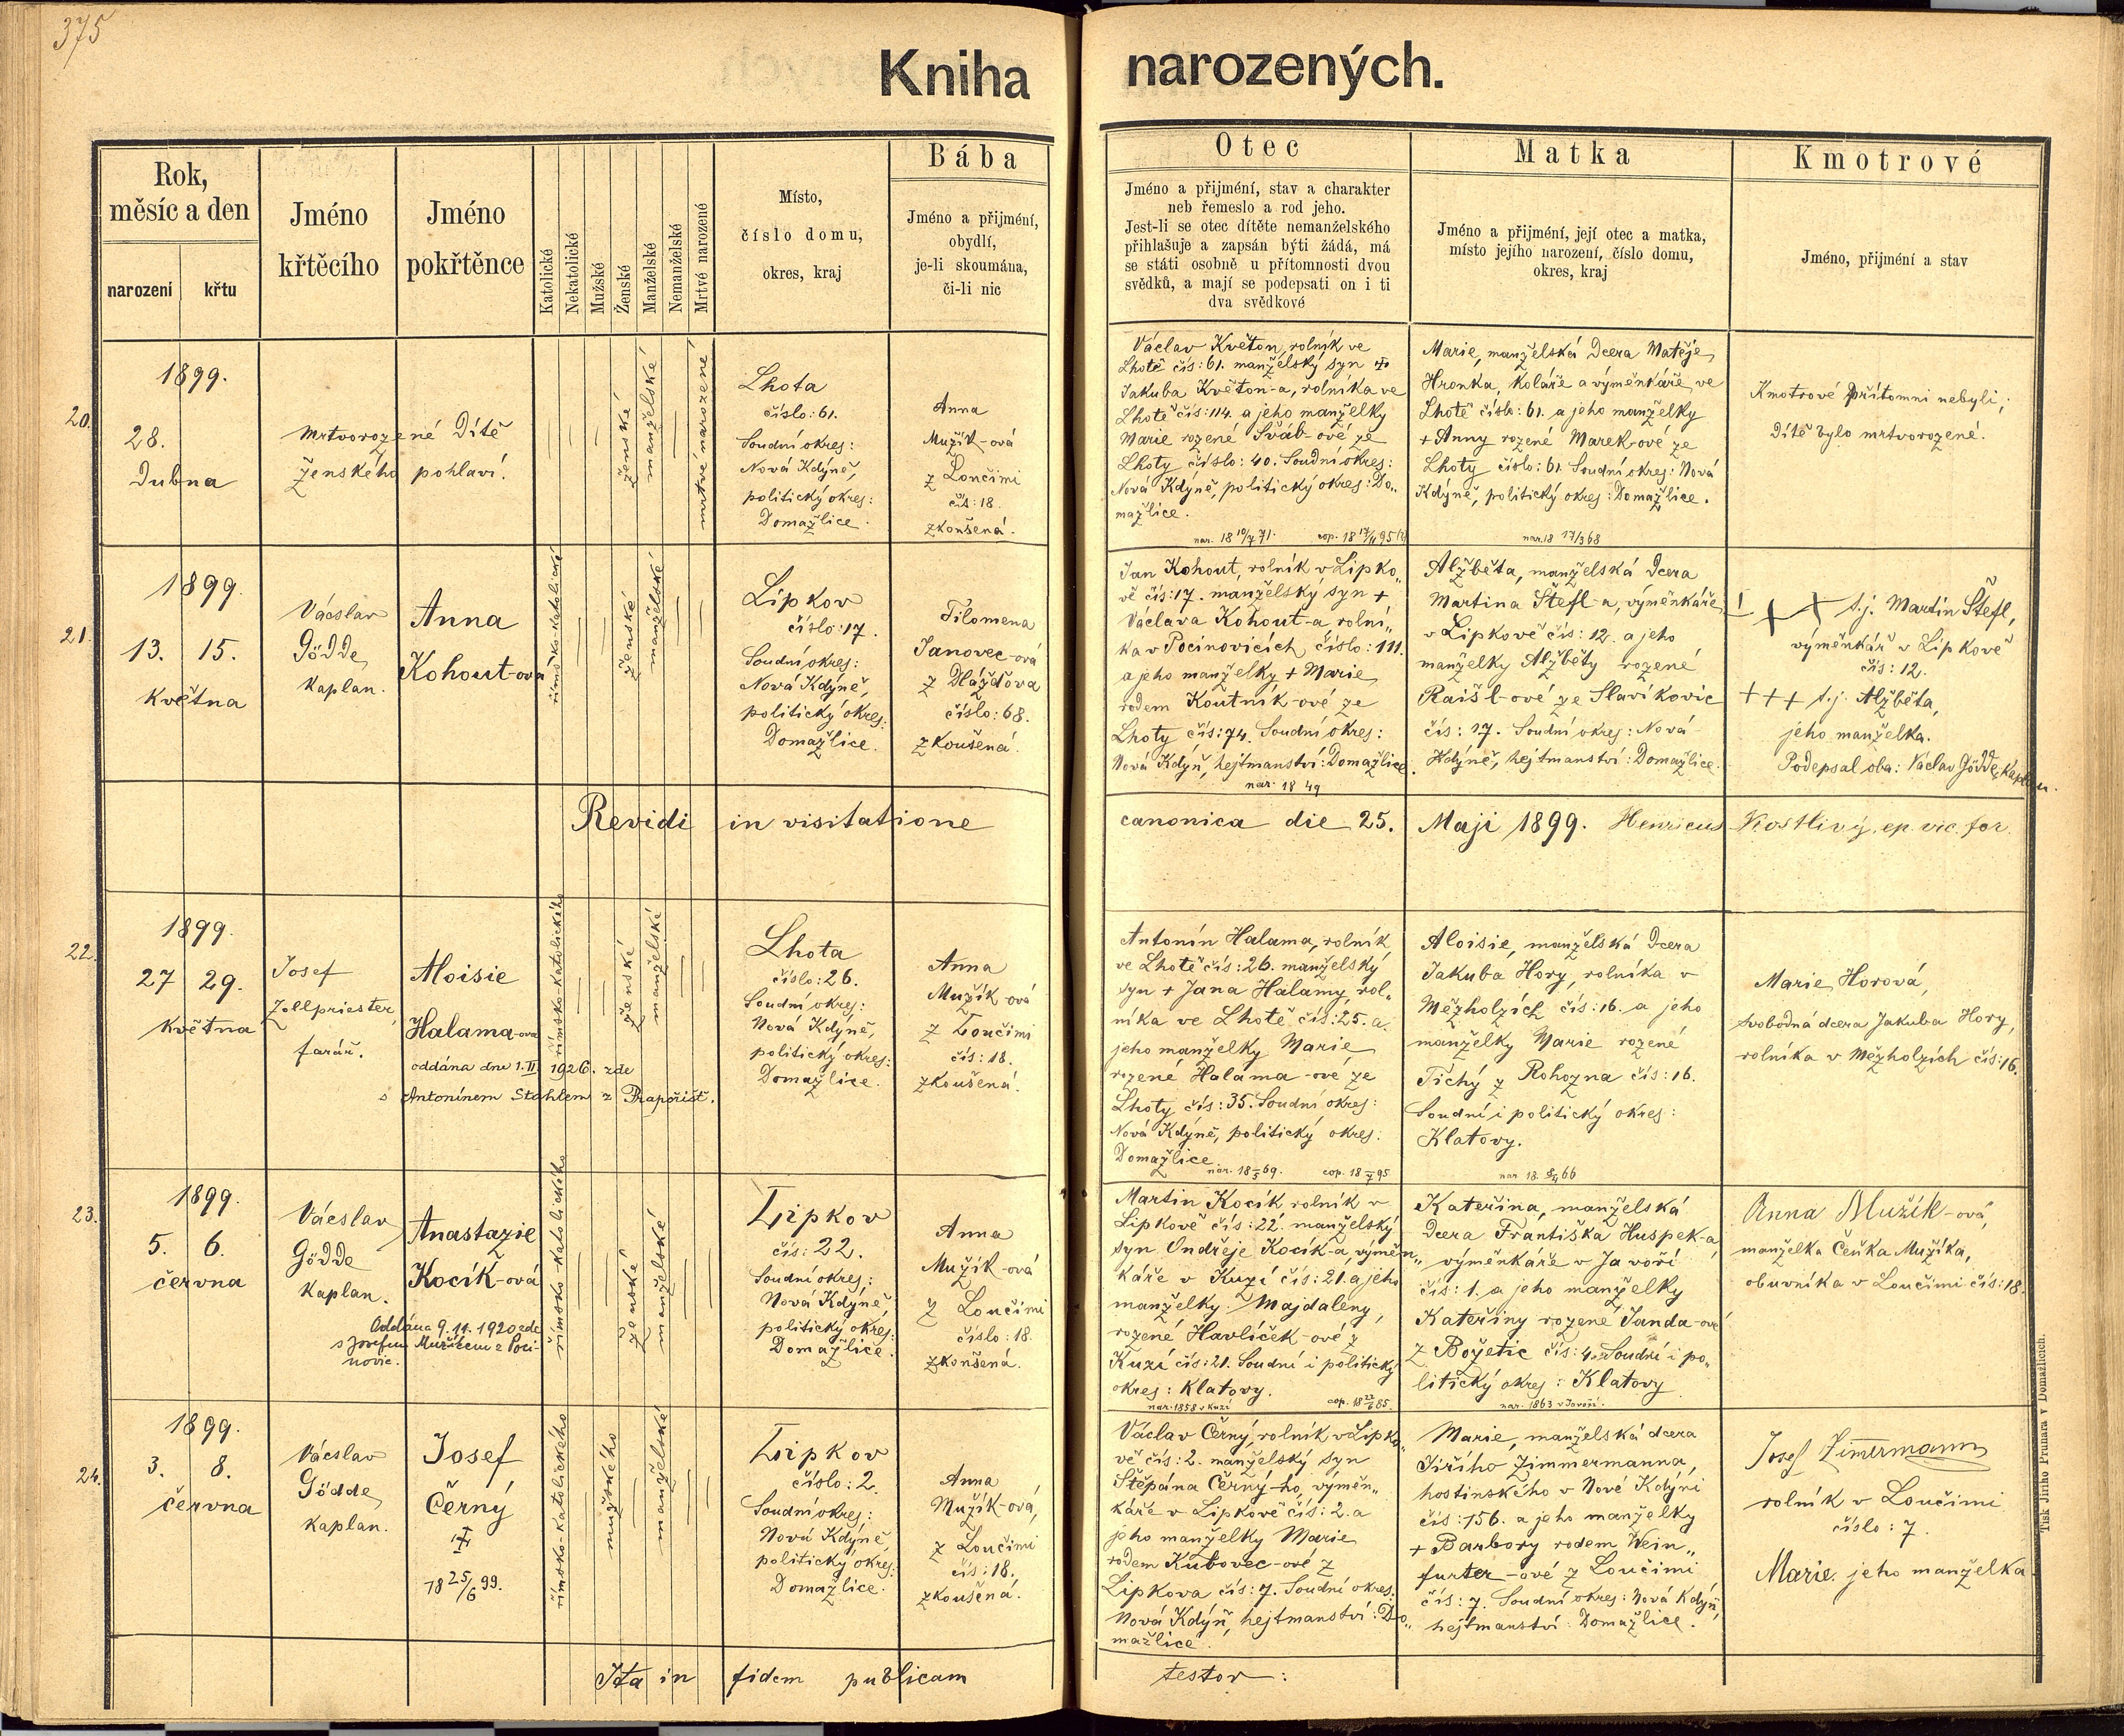 375
Kniha narozených.
Rok,
měsíc a den
narození
křtu
Jméno
křtěcího
Jméno
pokřtěnce
Katolické
Nekatolické
Mužské
Ženské
Manželské
Nemanželské
Mrtvé narozené
Místo,
číslo domu,
okres, kraj
Bába
Jméno a přijmění,
obydlí,
je-li skoumána,
či-li nic
Otec
Jméno a přijmění, stav a charakter
neb řemeslo a rod jeho.
Jest-li se otec dítěte nemanželského
přihlašuje a zapsán býti žádá, má
se státi osobně u přítomnosti dvou
svědků, a mají se podepsati on i ti
dva svědkové
Matka
Jméno a přijmění, její otec a matka,
místo jejího narození, číslo domu,
okres, kraj
Kmotrové
Jméno, přijmění a stav
20.
1899.
28.
Dubna
Mrtvorozené Dítě
ženského pohlaví.
ženské
manželské
mrtvé narozené
Lhota
číslo: 61.
Soudní okres:
Nová Kdýně,
politický okres:
Domažlice.
Anna
Mužík-ová
z Loučimi
čís: 18.
zkoušená.
Václav Květon, rolník ve
Lhotě čís: 61. manželský syn
Jakuba Květon-a, rolníka ve
Lhotě čís: 114. a jeho manželky
Marie rozené Šváb-ové ze
Lhoty číslo: 40. Soudní okres:
Nová Kdýně, politický okres: Do„
mažlice.
nar. 18 10/7 71. cop. 18 17/11 95
Marie, manželská Dcera Matěje
Hronka, koláře a výměnkáře ve
Lhotě číslo: 61. a jeho manželky
+ Anny rozené Marek-ové ze
Lhoty číslo: 61. Soudní okres: Nová
Kdýně, politický okres: Domažlice.
nar. 18 17/3 68
Kmotrové přítomni nebyli;
dítě bylo mrtvorozené.
21.
1899.
13. 15.
května
Václav
Gödde,
kaplan.
Anna
Kohout-ová
římsko-katolické
ženské
manželské
Lipkov
číslo: 17.
Soudní okres:
Nová Kdýně,
politický okres:
Domažlice.
Filomena
Janovec-ová
z Hlážďova
číslo: 68.
zkoušená.
Jan Kohout, rolník v Lipko„
vě čís: 17. manželský syn +
Václava Kohout-a rolní„
ka v Pocinovicích, číslo: 111.
a jeho manželky + Marie
rodem Koutník-ové ze
Lhoty čís: 74. Soudní okres:
Nová Kdýň, hejtmanství: Domažlice.
nar. 18 49
Alžběta, manželská Dcera
Martina Štefl-a, výměnkáře
v Lipkově čís: 12. a jeho
manželky Alžběty rozené
Raišl-ové ze Slavíkovic
čís: 17. Soudní okres: Nová
Kdýně, hejtmanství: Domažlice.
+ + + t.j. Martin Štefl,
výměnkář v Lipkově
čís: 12.
+++ t.j. Alžběta,
jeho manželka.
Podepsal oba: Václav Gödde, kaplan.
Revidi in visitatione canonica die 25. Maji 1899. Henricus Kostlivý, ep. vic. for.
22.
1899.
27 29.
května
Josef
Zollpriester,
farář.
Aloisie
Halama-ová
oddána dne 1. II. 1926. zde
s Antonínem Stahlem z Prapořišť.
římsko-katolického
ženské
manželské
Lhota
číslo: 26.
Soudní okres:
Nová Kdýně,
politický okres:
Domažlice.
Anna
Mužík-ová
z Loučimi
čís: 18.
zkoušená.
Antonín Halama, rolník
ve Lhotě čís: 26. manželský
syn + Jana Halamy, rol„
níka ve Lhotě čís: 25. a
jeho manželky Marie
rozené Halama-ové ze
Lhoty čís: 35. Soudní okres:
Nová Kdýně, politický okres:
Domažlice.
Aloisie, manželská Dcera
Jakuba Hory, rolníka v
Mězholzích čís: 16. a jeho
manželky Marie rozené
Tichý z Rohozna čís: 16.
Soudní i politický okres:
Klatovy.
Marie Horová,
svobodná dcera Jakuba Hory,
rolníka v Mězholzích čís: 16.
23.
1899.
5. 6.
června
Václav
Gödde
kaplan.
Anastazie
Kocík-ová
Oddána 9.11.1920 zde
s Josefem Mužíkem z Poci-
novic.
římsko-katolického
ženské
manželské
Lipkov
čís: 22.
Soudní okres:
Nová Kdýně,
politický okres:
Domažlice.
Anna
Mužík-ová
z Loučimi
číslo: 18.
zkoušená.
Martin Kocík rolník v
Lipkově čís: 22. manželský
syn Ondřeje Kocík-a, výměn„
káře v Kuzí čís: 21. a jeho
manželky Majdaleny,
rozené Havlíček-ové z
Kuzí čís: 21. Soudní i politický
okres: Klatovy.
nar. 1858 v Kuzí
Kateřina, manželská
Dcera Františka Huspek-a
výměnkáře v Javoří
čís: 1. a jeho manželky
Kateřiny rozené Janda-ové
z Božetic čís: 4. Soudní i po„
litický okres: Klatovy
nar. 1863 v Javoří.
Anna Mužík-ová,
manželka Čeňka Mužíka,
obuvníka v Loučimi čís: 18.
24.
1899.
3. 8.
června
Václav
Gödde,
kaplan.
Josef
Černý
18 25/6 99.
římsko-katolického
mužského
manželské
Lipkov
číslo: 2.
Soudní okres:
Nová Kdýně,
politický okres:
Domažlice.
Anna
Mužík-ová,
z Loučimi
čís: 18.
zkoušená.
Václav Černý, rolník v Lipko„
vě čís: 2. manželský syn
Štěpána Černý-ho, výměn„
káře v Lipkově čís: 2. a
jeho manželky Marie
rodem Kubovec-ové z
Lipkova čís: 7. Soudní okres:
Nová Kdýň, hejtmanství: Do„
mažlice.
Marie, manželská dcera
Jiřího Zimmermanna,
hostinského v Nové Kdýni
čís: 156. a jeho manželky
+ Barbory rodem Wein„
furter-ové z Loučimi
čís: 7. Soudní okres: Nová Kdýň,
hejtmanství: Domažlice.
Josef Zimermann
rolník v Loučimi
číslo: 7
Marie, jeho manželka.
Ita in fidem publicam testor:
Tisk Jiřího Prunara v Domažlicích.